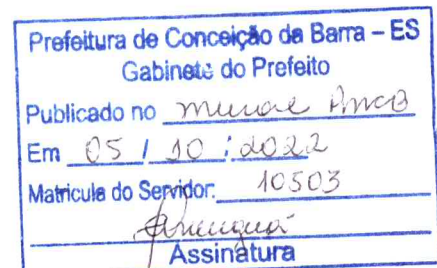 Prefeitura de Conceição da Barra – ES
Gabinete do Prefeito
Publicado no mural PMCB
Em 05 / 10 / 2022
Matricula do Servidor: 10503
Assinatura